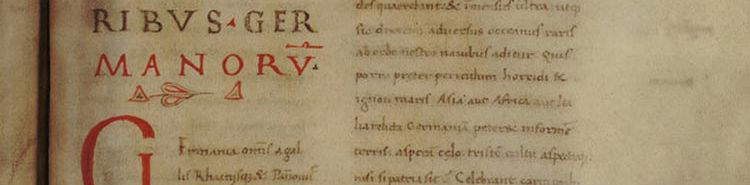 RIBVS·GER
MANORV̄.
G Ermania omīs agal
lis Rhætijsq; & Pānonijs
sic dixerim aduersus oceanus raris
ab orbe nostro nauibus aditur. Quis
porro preter periculum horridi &
ignoti maris Asia aut Africa aut Ita
lia relicta Germaniā peteret informē
terris. asperā celo. tristē cultu aspectuq;
nisi si patria sit. Celebrant